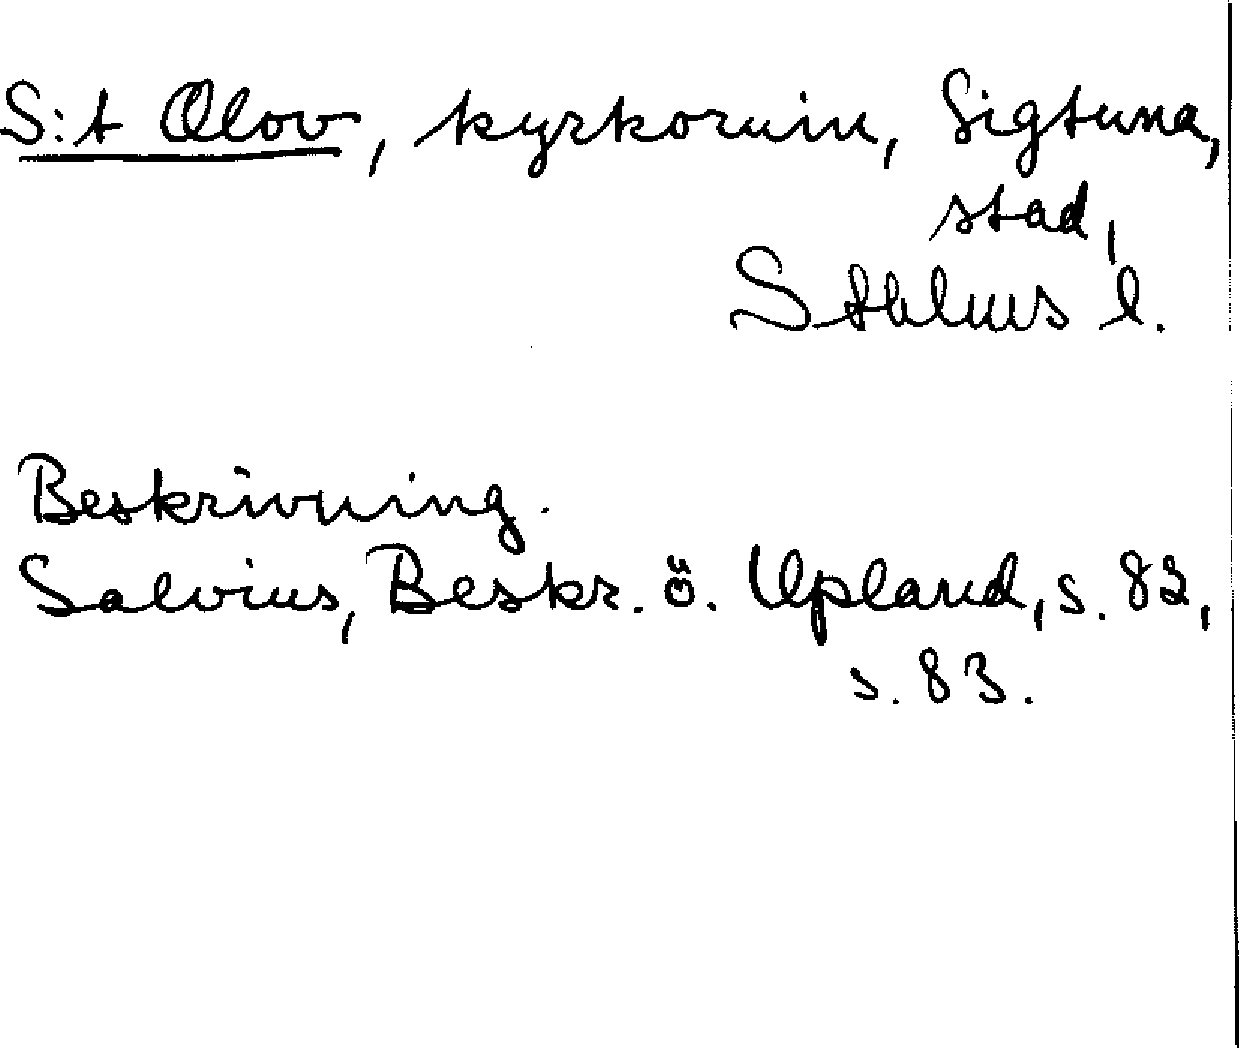 S:t Olov, kyrkoruin, Sigtuna,
stad,
Sthlms l.
Beskrivning.
Salvius, Beskr. ö. Upland, s. 82,
s. 83.